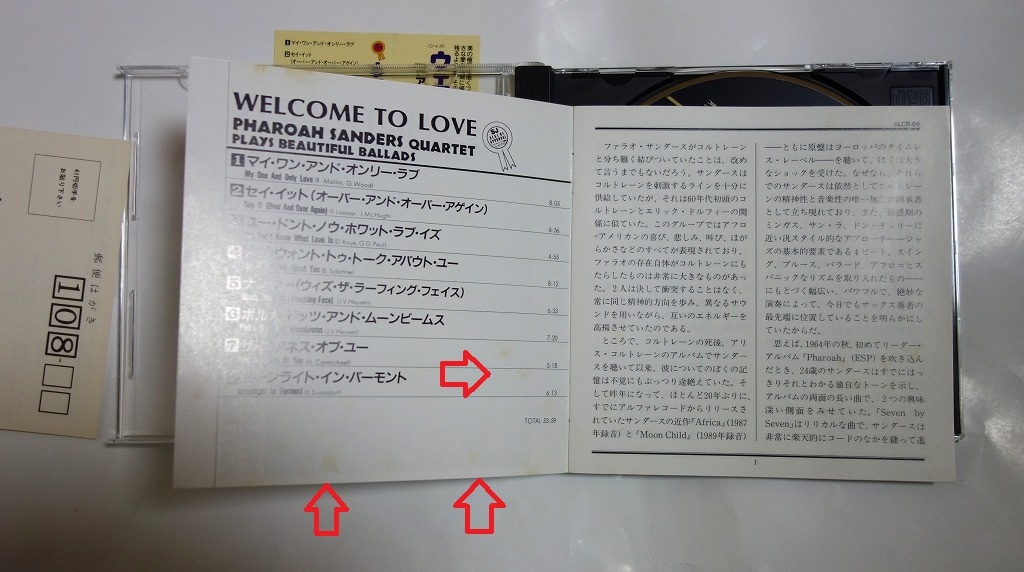 1 マイ・ワン・アンド・オンリー・ラブ
2 セイ・イット
(オーバー・アンド・オーバー・アゲイン)
(ジャズ)
41円切手を
お貼り下さい
郵便はがき
108-
WELCOME TO LOVE
PHAROAH SANDERS QUARTET
PLAYS BEAUTIFUL BALLADS
SJ
1 マイ・ワン・アンド・オンリー・ラブ
My One And Only Love
8:05
2 セイ・イット(オーバー・アンド・オーバー・アゲイン)
Say It (Over And Over Again)
6:56
ユー・ドント・ノウ・ホワット・ラブ・イズ
Know What Love Is
4:55
4 ウォント・トゥ・トーク・アバウト・ユー
About You
8:12
5 (ウィズ・ザ・ラーフィング・フェイス)
6:53
6 ポルカ・ドッツ・アンド・ムーンビームス
7:20
7 ネス・オブ・ユー
5:18
ムーンライト・イン・バーモント
6:13
TOTAL 53:59
ALCR-64
ファラオ・サンダースがコルトレーン
と分ち難く結びついていたことは、改め
て言うまでもないだろう。サンダースは
コルトレーンを刺激するラインを十分に
供給していたが、それは60年代初頭のコ
ルトレーンとエリック・ドルフィーの関
係に似ていた。このグループではアフロ
=アメリカンの喜び、悲しみ、叫び、ほが
らかさなどのすべてが表現されており、
ファラオの存在自体がコルトレーンにも
たらしたものは非常に大きなものがあっ
た。2人は決して衝突することはなく、
常に同じ精神的方向を歩み、異なるサウ
ンドを用いながら、互いのエネルギーを
高揚させていたのである。
ところで、コルトレーンの死後、アリ
ス・コルトレーンのアルバムでサンダー
スを聴いて以来、彼についてのぼくの記
憶は不覚にもぶっつり途絶えていた。そ
して昨年になって、ほとんど20年ぶりに、
すでにアルファレコードからリリースさ
れていたサンダースの近作「Africa」(1987
年録音)と「Moon Child」(1989年録音)
──ともに原盤はヨーロッパのタイムレ
ス・レーベル──を聴いて、ぼくは大き
なショックを受けた。なぜなら、それら
でのサンダースは依然としてコルトレーン
の精神性と音楽性の唯一無二の継承者
として立ち現れており、また、最盛期の
ミンガス、サン・ラ、ドン・チェリーに
近い汎スタイル的なアプローチ──ジャ
ズの基本的要素である4ビート、スイン
グ、ブルース、バラード、アフロとヒス
パニックなリズムを取り入れたもの──
にもとづく幅広い、パワフルで、絶妙な
演奏によって、今日でもサックス奏者の
最先端に位置していることを明らかにし
ていたからだ。
思えば、1964年の秋、初めてリーダー・
アルバム「Pharoah」(ESP)を吹き込ん
だとき、24歳のサンダースはすでにはっ
きりそれとわかる独自なトーンを示し、
アルバムの両面の長い曲で、2つの興味
深い側面をみせていた。「Seven by
Seven」はリリカルな曲で、サンダースは
非常に楽天的にコードのなかを縫って進
1